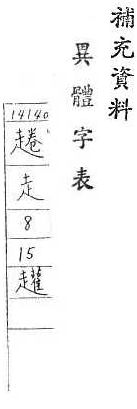 補充資料
異體字表
14140
趨
走
8
15
趯